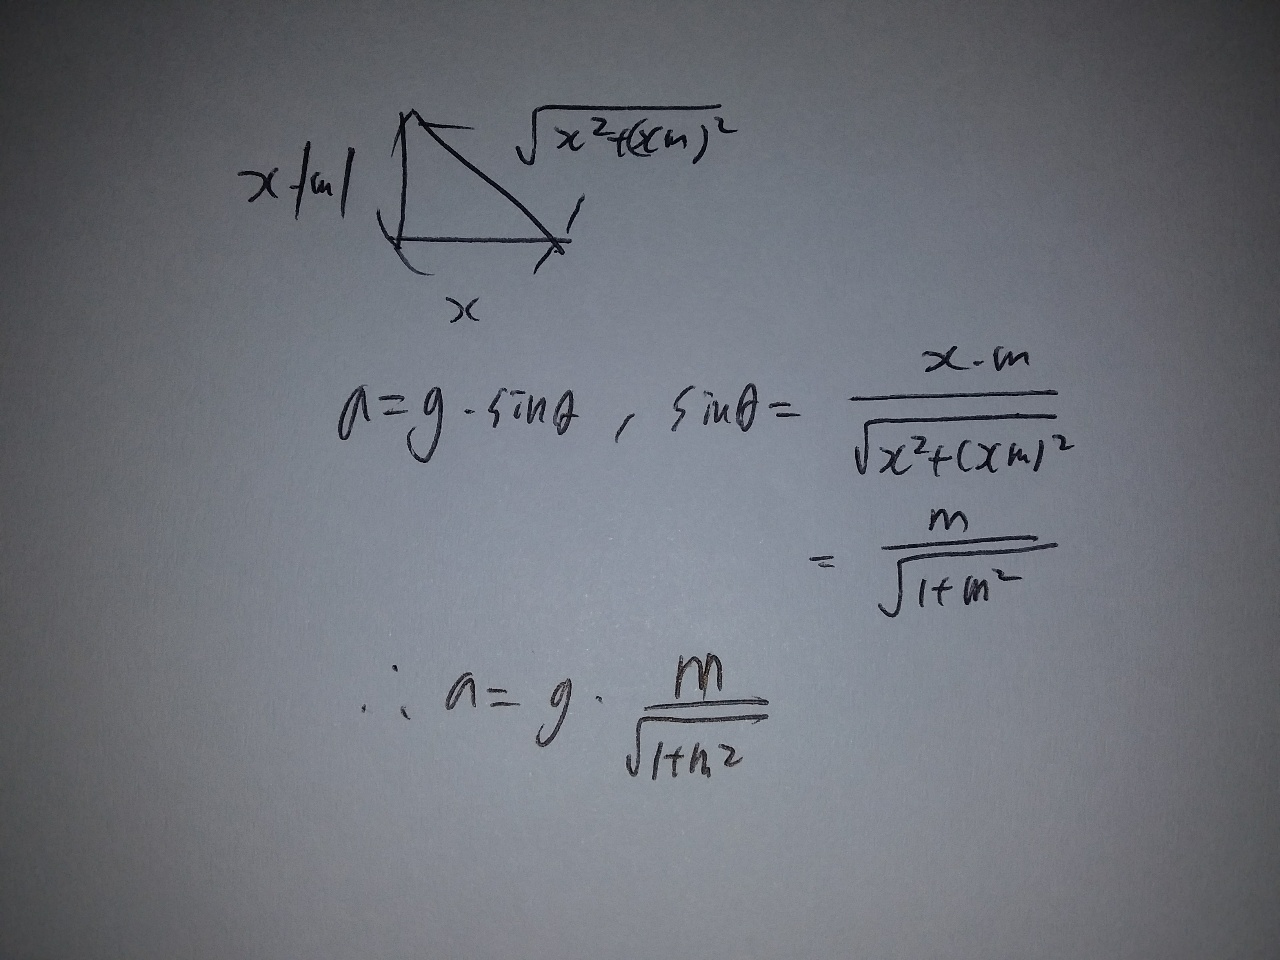 x|m|
√(x²+(xm)²)
x
a=g·sinθ, sinθ= x·m / √(x²+(xm)²)
= m / √(1+m²)
∴ a= g· m / √(1+m²)